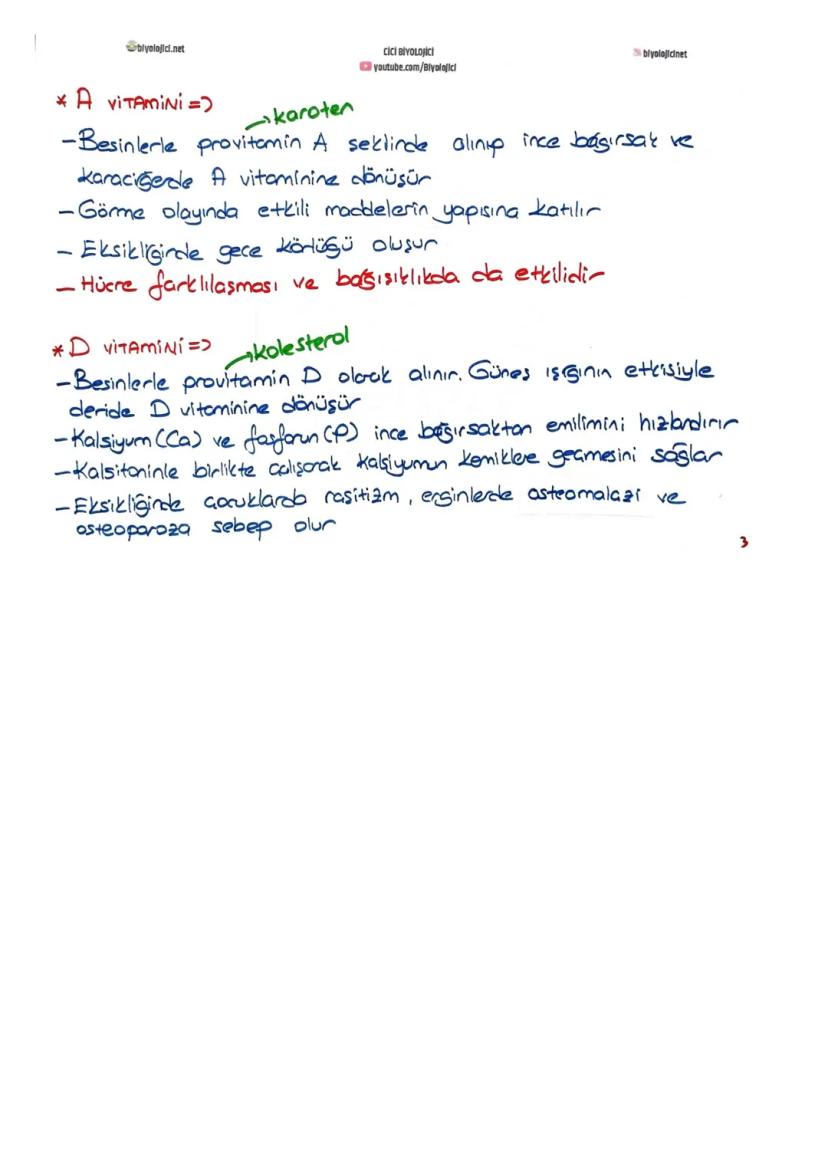 biyolojici.net
CİCİ BİYOLOJİCİ
youtube.com/Biyolojici
biyolojicinet
* A VİTAMİNİ =>
→karoten
- Besinlerle provitamin A seklinde alınıp ince bağırsak ve
karaciğerde A vitaminine dönüşür
- Görme olayında etkili maddelerin yapısına katılır
- Eksikliğinde gece körlüğü oluşur
- Hücre farklılaşması ve bağışıklıkda da etkilidir
* D VİTAMİNİ =>
→kolesterol
- Besinlerle provitamin D olarak alınır. Güneş ışığının etkisiyle
deride D vitaminine dönüşür
- Kalsiyum (Ca) ve fosforun (P) ince bağırsaktan emilimini hızlandırır
- Kalsitoninle birlikte çalışarak kalsiyumun kemiklere geçmesini sağlar
- Eksikliğinde çocuklarda raşitizm, erginlerde osteomalazi ve
osteoporoza sebep olur
3